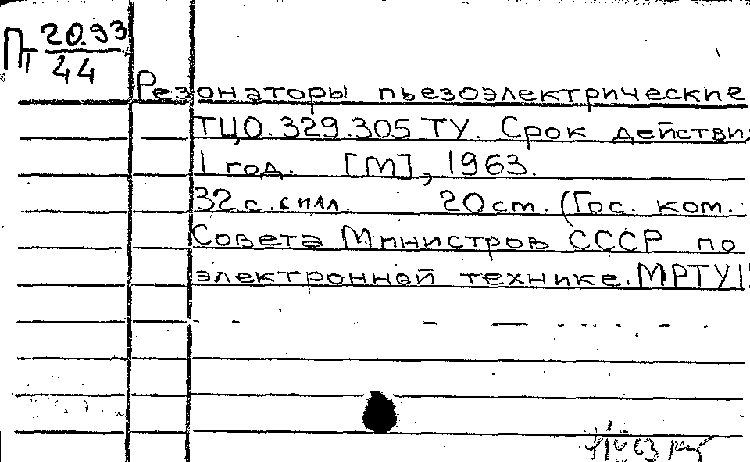 Пт 20.93
44
Резонаторы пьезоэлектрические
ТЦО.329.305 ТУ. Срок действи
1 год. [М], 1963.
32 с. с илл. 20 cm. (Гос. ком.
Совета Министров СССР по
электронной технике. МРТУ